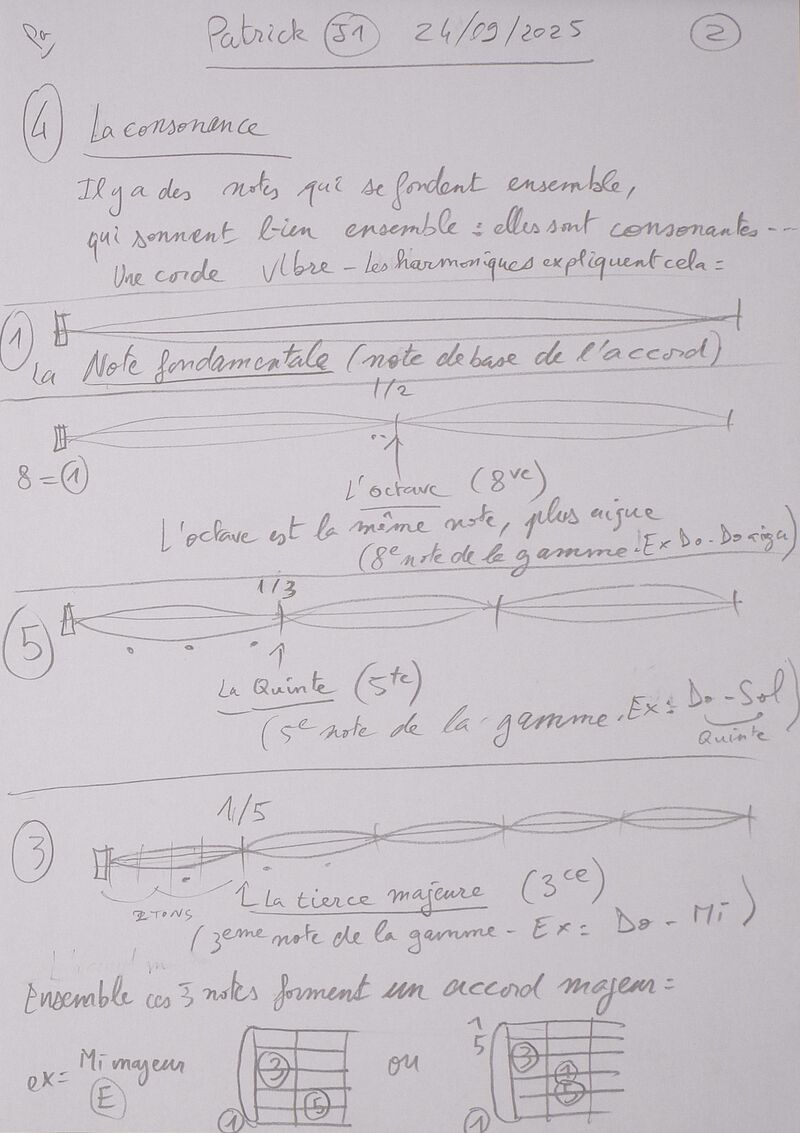 Patrick J1 24/09/2025 2
4 La consonance
Il y a des notes qui se fondent ensemble,
qui sonnent bien ensemble : elles sont consonantes---
Une corde vibre - Les harmoniques expliquent cela =
1
La Note fondamentale (note de base de l'accord)
1/2
8 = 1
L'octave (8ve)
L'octave est la même note, plus aigue
(8e note de la gamme. Ex Do - Do aigu)
1/3
5
La Quinte (5te)
(5e note de la gamme. Ex = Do - Sol)
Quinte
1/5
3
La tierce majeure (3ce)
2 TONS
(3eme note de la gamme - Ex = Do - Mi)
Ensemble ces 3 notes forment un accord majeur =
ex = Mi majeur ou
E
3
5
1
1
5
3
1
5
1